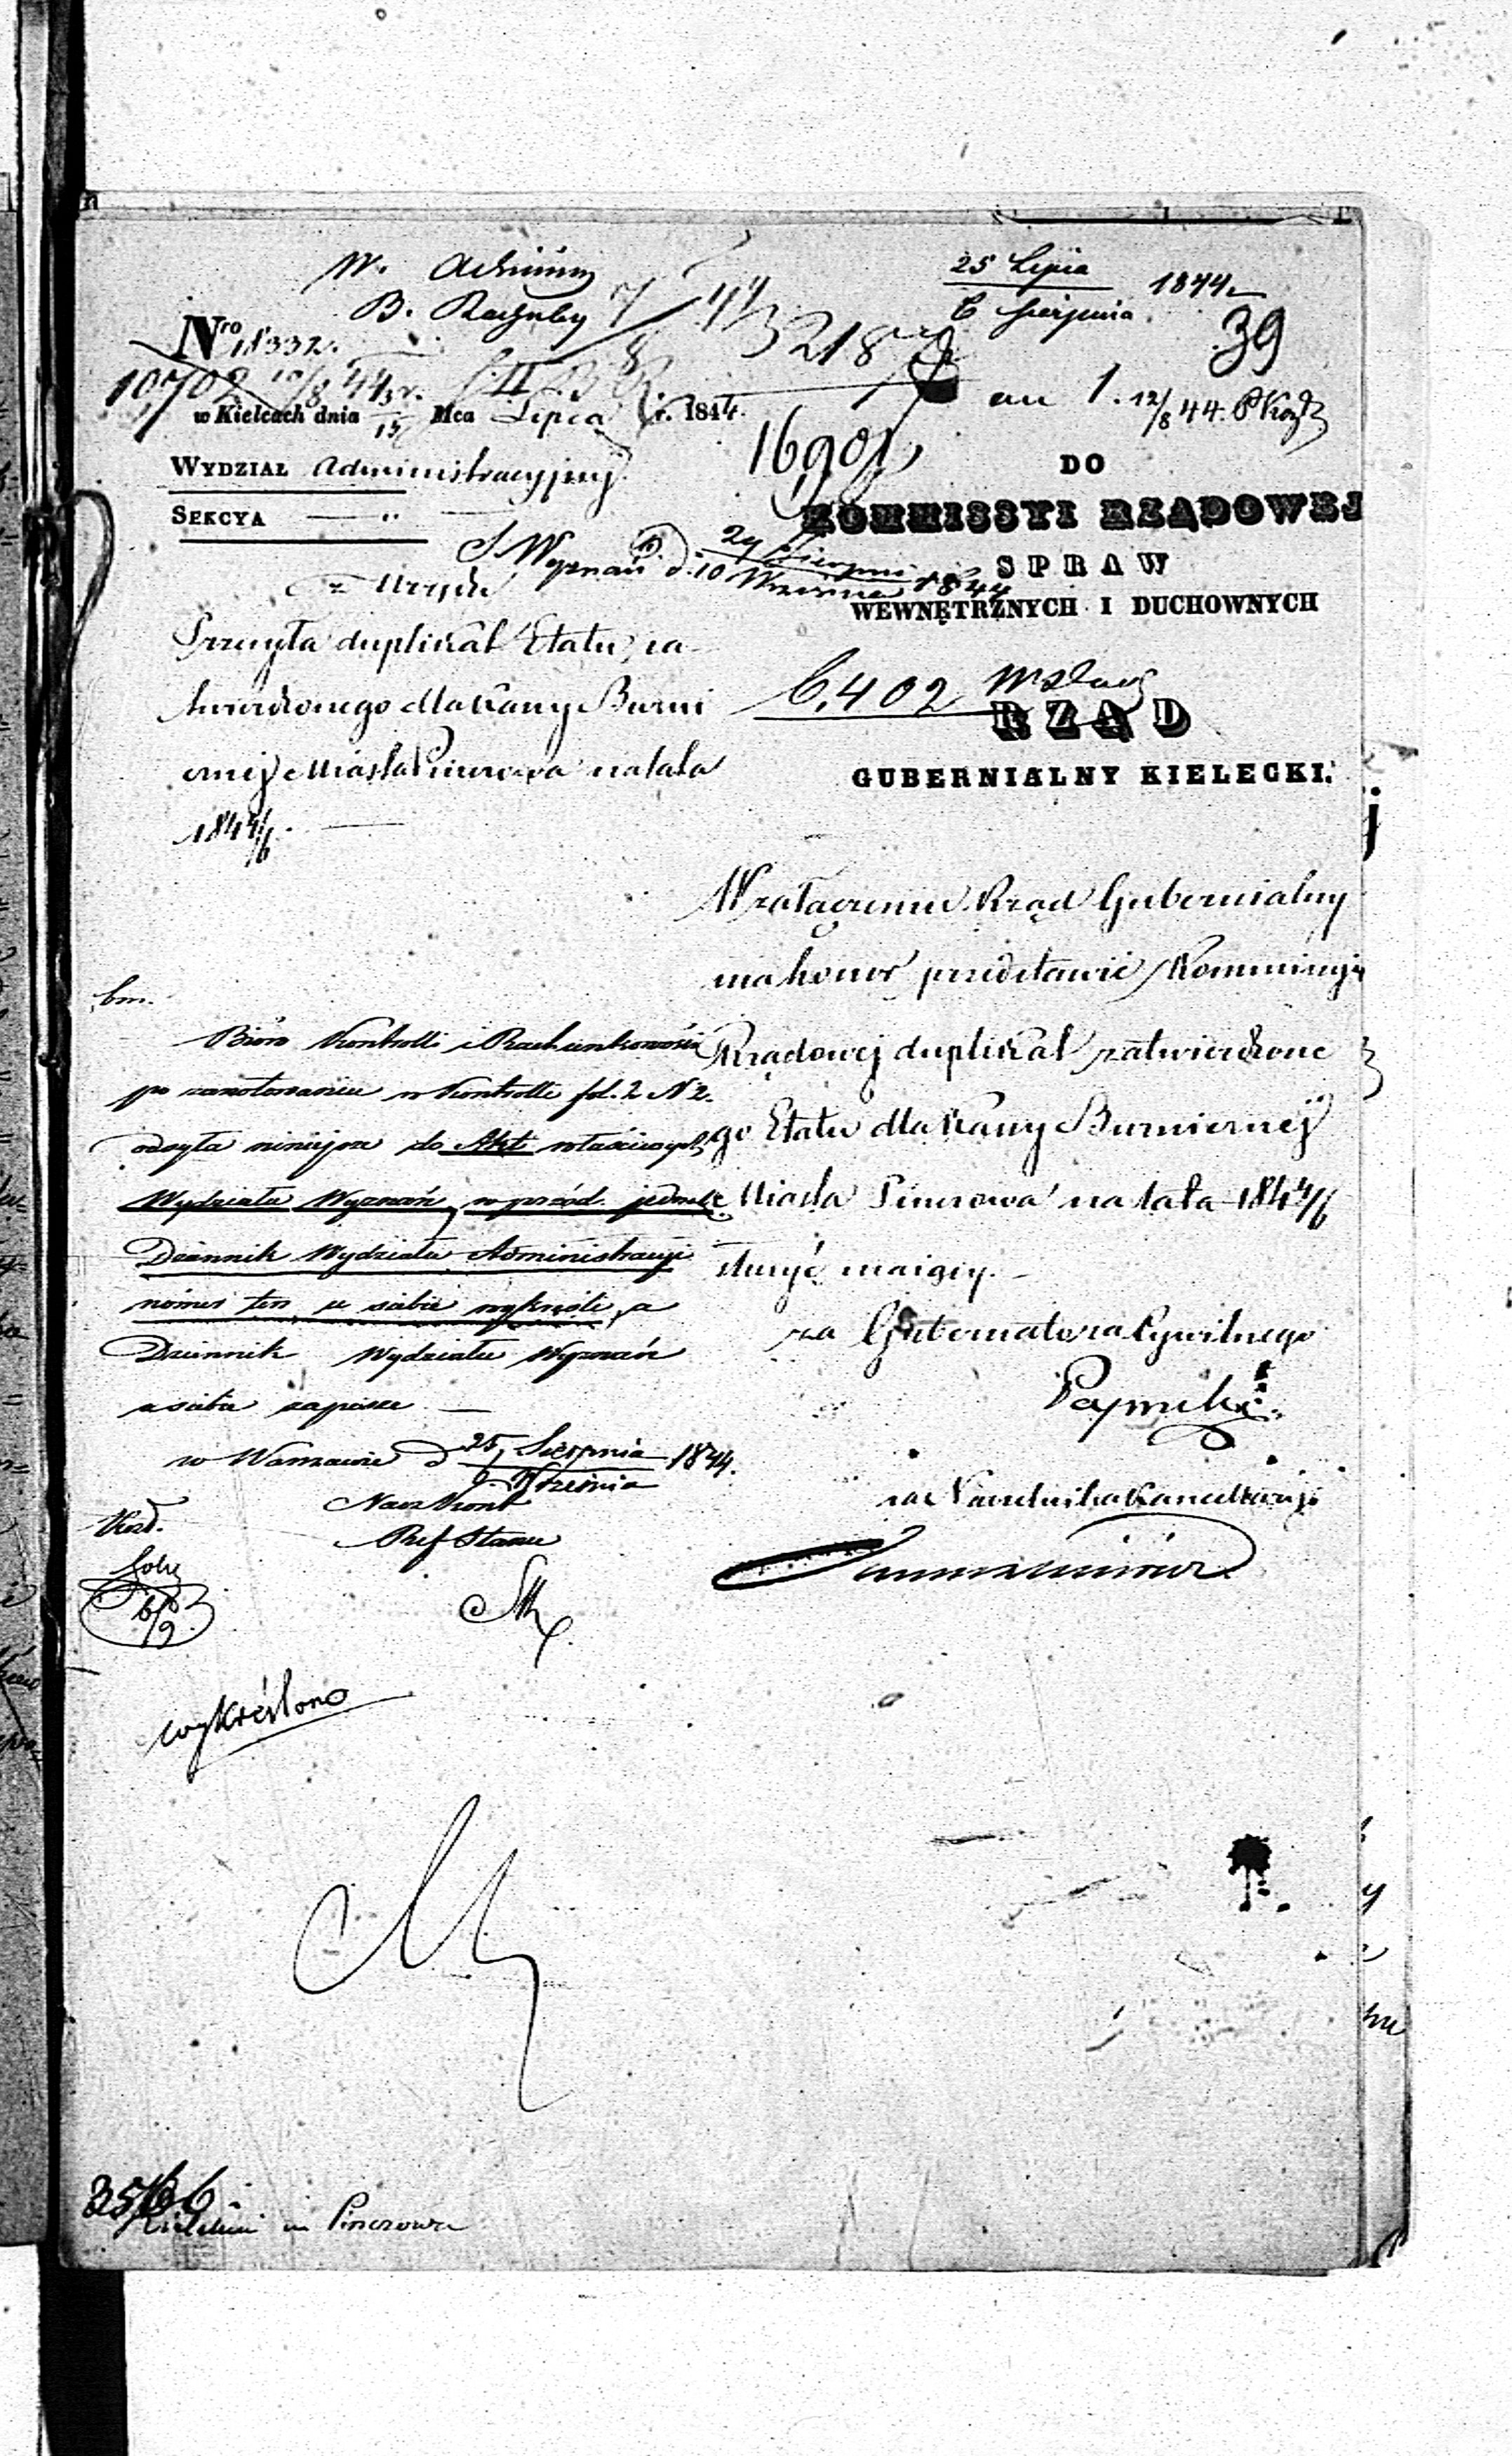 W. Admin
25 Lipca 1844
6 Sierpnia
39
Nro 18332.
3218
10702 10/8 44
w Kielcach dnia 3/15 Mca Lipca r. 1844.
an 1. 12/8 44.
16901
WYDZIAŁ Administracyjny
SEKCYA — " —
DO
KOMMISSYI RZĄDOWEJ
SPRAW
WEWNĘTRZNYCH I DUCHOWNYCH
S. Wyznań d. 29 Sierpni
10 Września 1844
6,402
RZĄD
GUBERNIALNY KIELECKI.
Przesyła duplikat Etatu za
twierdzonego dla Kassy Bużni
cznej Miasta Pinczowa na lata
1844/6.
W załączeniu Rząd Gubernialny
ma honor przedstawić Kommissyi
Rządowej duplikat zatwierdzone
go Etatu dla Kassy Bużnicznej
Miasta Pinczowa na lata 1844/6
służyć mający.
za Gubernatora Cywilnego
za Naczelnika Kancellaryi
bm.
Biuro Kontrolli i Rachunkowości
po zanotowaniu w Kontrolli fol. 2 N 2.
odsyła niniejsze do Akt właściwych
Wydziału Wyznań, wprzód jednak
Dziennik Wydziału Administracyi
numer ten u siebie wykreśli, a
Dziennik Wydziału Wyznań
u siebie zapisze. —
w Warszawie d 25 Sierpnia 1844.
6 Września
Nacz Kont
Ref Stanu
6/9
wykreślono
Kielecki m Pinczowa